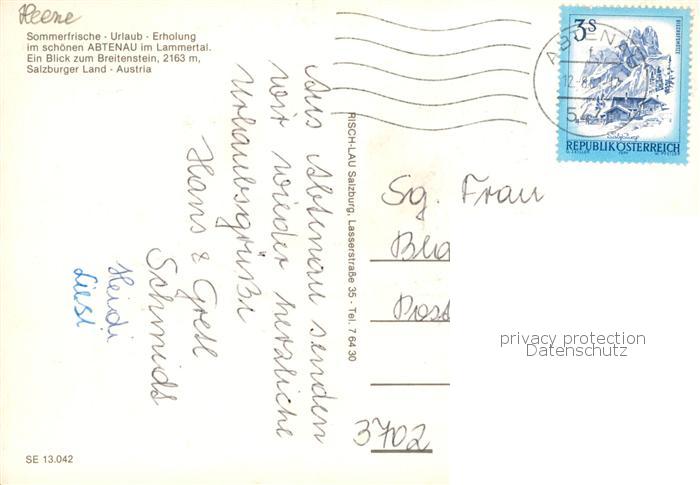 Heene
Sommerfrische · Urlaub · Erholung
im schönen ABTENAU im Lammertal.
Ein Blick zum Breitenstein, 2163 m,
Salzburger Land · Austria
Aus Abtenau senden
wir wieder herzliche
Urlaubsgrüße
Hans & Gretl
Schmids
Heidi
Liesl
RISCH-LAU Salzburg, Lasserstraße 35 · Tel. 7 64 30
3S
ABTENAU
REPUBLIK ÖSTERREICH
Sg. Frau
Post
3702
privacy protection
Datenschutz
SE 13.042